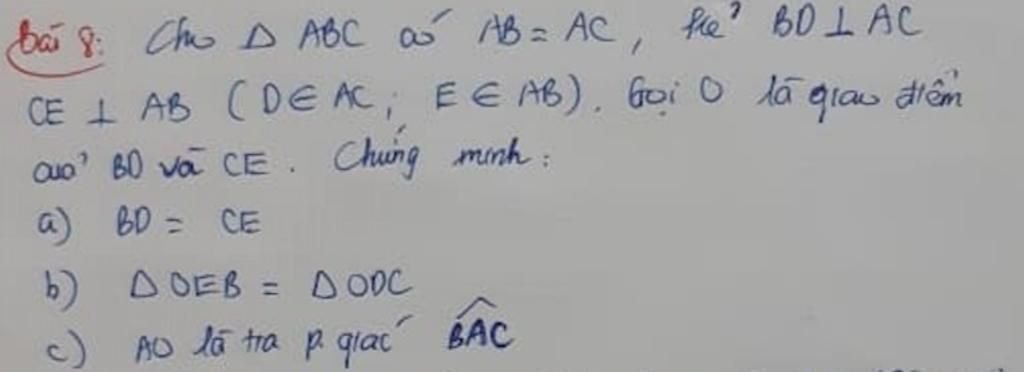 Bài 8: Cho Δ ABC có AB = AC, kẻ BD ⊥ AC
CE ⊥ AB (D ∈ AC; E ∈ AB). Gọi O là giao điểm
của BD và CE. Chứng minh:
a) BD = CE
b) Δ OEB = Δ ODC
c) AO là tia p giác \widehat{BAC}